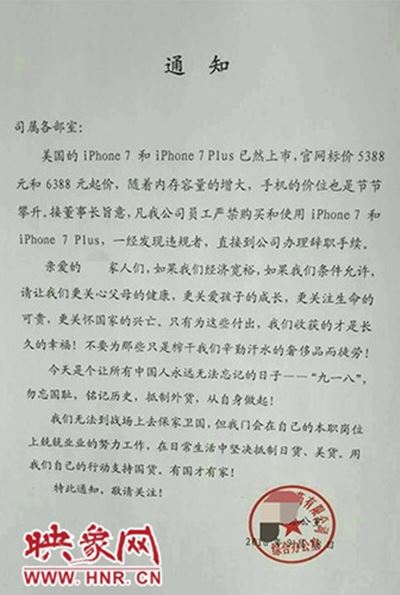 通 知
司属各部室：
美国的 iPhone 7 和 iPhone 7 Plus 已然上市，官网标价 5388
元和 6388 元起价，随着内存容量的增大，手机的价位也是节节
攀升。接董事长旨意，凡我公司员工严禁购买和使用 iPhone 7 和
iPhone 7 Plus，一经发现违规者，直接到公司办理辞职手续。
亲爱的 家人们，如果我们经济宽裕，如果我们条件允许，
请让我们更关心父母的健康，更关爱孩子的成长，更关注生命的
可贵，更关怀国家的兴亡。只有为这些付出，我们收获的才是长
久的幸福！不要为那些只是榨干我们辛勤汗水的奢侈品而徒劳！
今天是个让所有中国人永远无法忘记的日子——“九一八”，
勿忘国耻，铭记历史，抵制外货，从自身做起！
我们无法到战场上去保家卫国，但我门会在自己的本职岗位
上兢兢业业的努力工作，在日常生活中坚决抵制日货、美货。用
我们自己的行动支持国货。有国才有家！
特此通知，敬请关注！
有限公司
综合办公室
映象网
WWW.HNR.CN